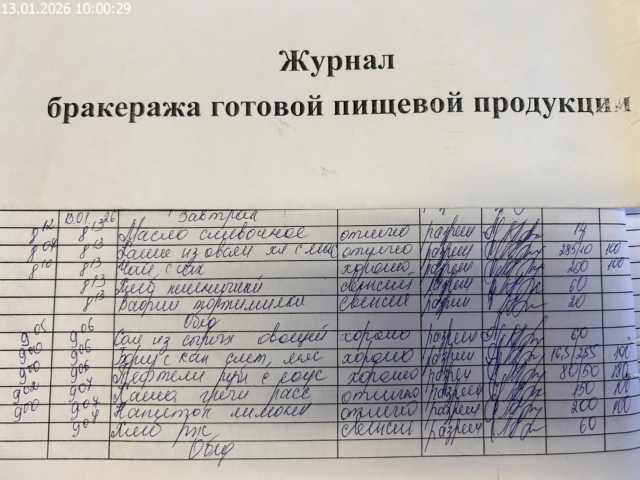 13.01.2026 10:00:29
Журнал
бракеража готовой пищевой продукции
13.01.26 Завтрак
8 12 8 13 Масло сливочное отлично разреш 14
8 13 Каша из овсян хл с мас отлично разреш 285/10 100
8 10 8 13 Чай с сах хорошо разреш 200 100
8 13 Хлеб пшеничный свежий разреш 60
8 13 свежий разреш 20
Обед
9 05 9 06 Сал из сырых овощей хорошо разреш 60
9 00 9 06 Борщ с кап смет, мяс хорошо разреш 100
9 00 9 06 Тефтели с соус хорошо разреш 80/50
9 02 9 07 Каша греч расс отлично разреш 150 100
9 00 9 07 Напиток лимонн отлично разреш 200 100
Хлеб рж свежий разреш 60
Обед